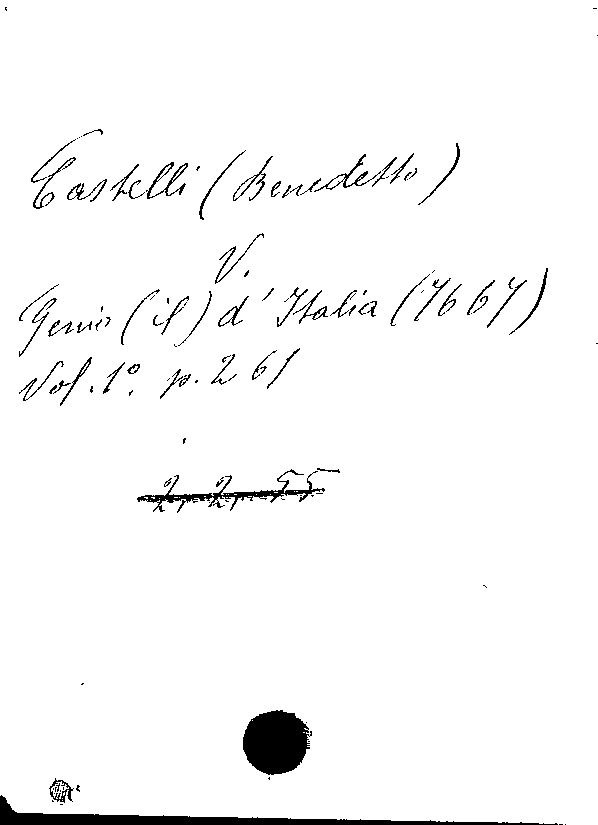 Castelli (Benedetto)
V.
Genio (il) d'Italia (7667)
Vol. 1º. p. 261
2, 2, 55